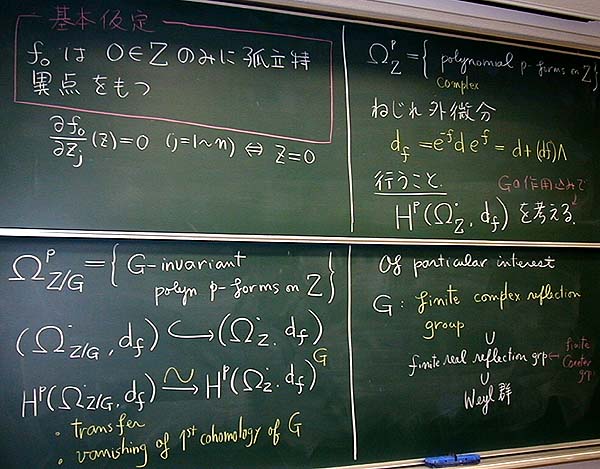 基本仮定
f₀ は 0∈Z のみに孤立特
異点をもつ
∂f₀/∂z_j (z)=0 (j=1~n) ⇔ z=0
Ω^p_Z = { polynomial p-forms on Z }
complex
ねじれ外微分
d_f = e^{-f} d e^f = d + (df)∧
行うこと.
Gの作用込みで
H^p(Ω^·_Z, d_f) を考える.
Ω^p_{Z/G} = { G-invariant
polyn p-forms on Z }
(Ω^·_{Z/G}, d_f) ↪ (Ω^·_Z, d_f)
H^p(Ω^·_{Z/G}, d_f) ⥲ H^p(Ω^·_Z, d_f)^G
・transfer
・vanishing of 1st cohomology of G
Of particular interest
G: finite complex reflection
group
∪
finite real reflection grp ← finite
Coxeter
grp
∪
Weyl 群